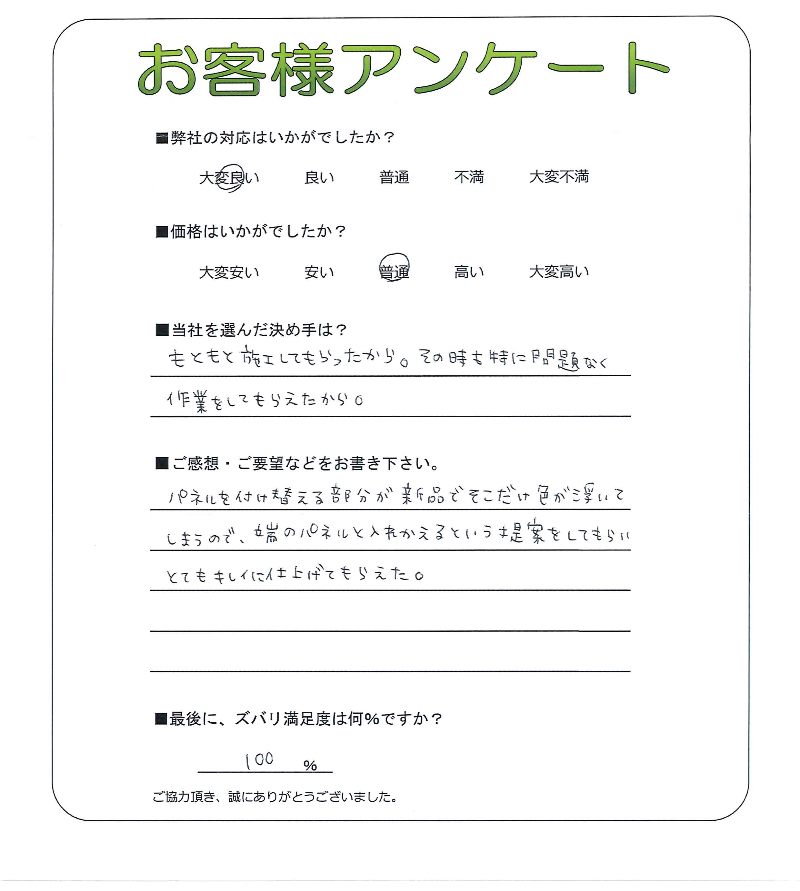 お客様アンケート
■弊社の対応はいかがでしたか?
大変良い 良い 普通 不満 大変不満
■価格はいかがでしたか?
大変安い 安い 普通 高い 大変高い
■当社を選んだ決め手は?
もともと施工してもらったから。その時も特に問題なく
作業をしてもらえたから。
■ご感想・ご要望などをお書き下さい。
パネルを付け替える部分が新品でそこだけ色が浮いて
しまうので、端のパネルと入れかえるという提案をしてもらい
とてもキレイに仕上げてもらえた。
■最後に、ズバリ満足度は何%ですか?
100 %
ご協力頂き、誠にありがとうございました。